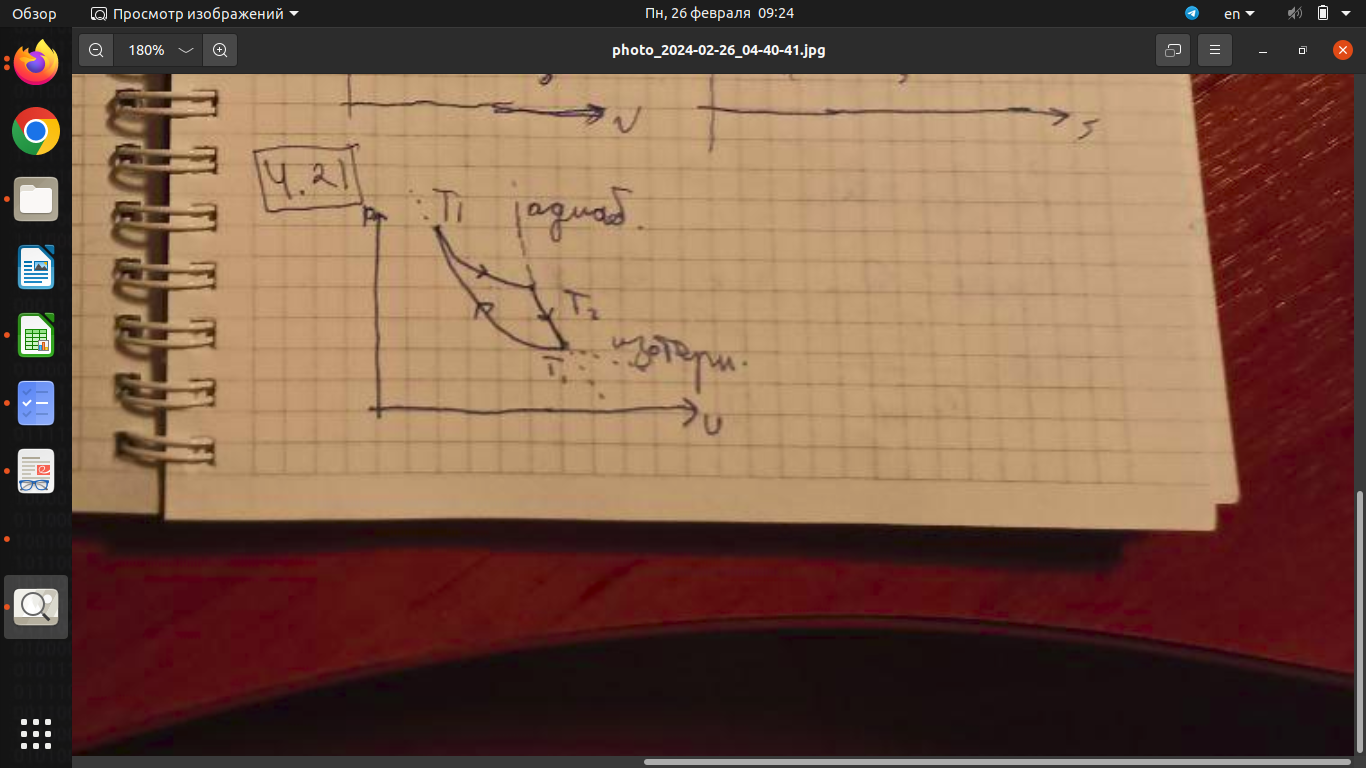 Обзор
Просмотр изображений
Пн, 26 февраля 09:24
en
180%
photo_2024-02-26_04-40-41.jpg
V
S
4.21
P
T1
адиаб.
T2
изотерм.
T1
U